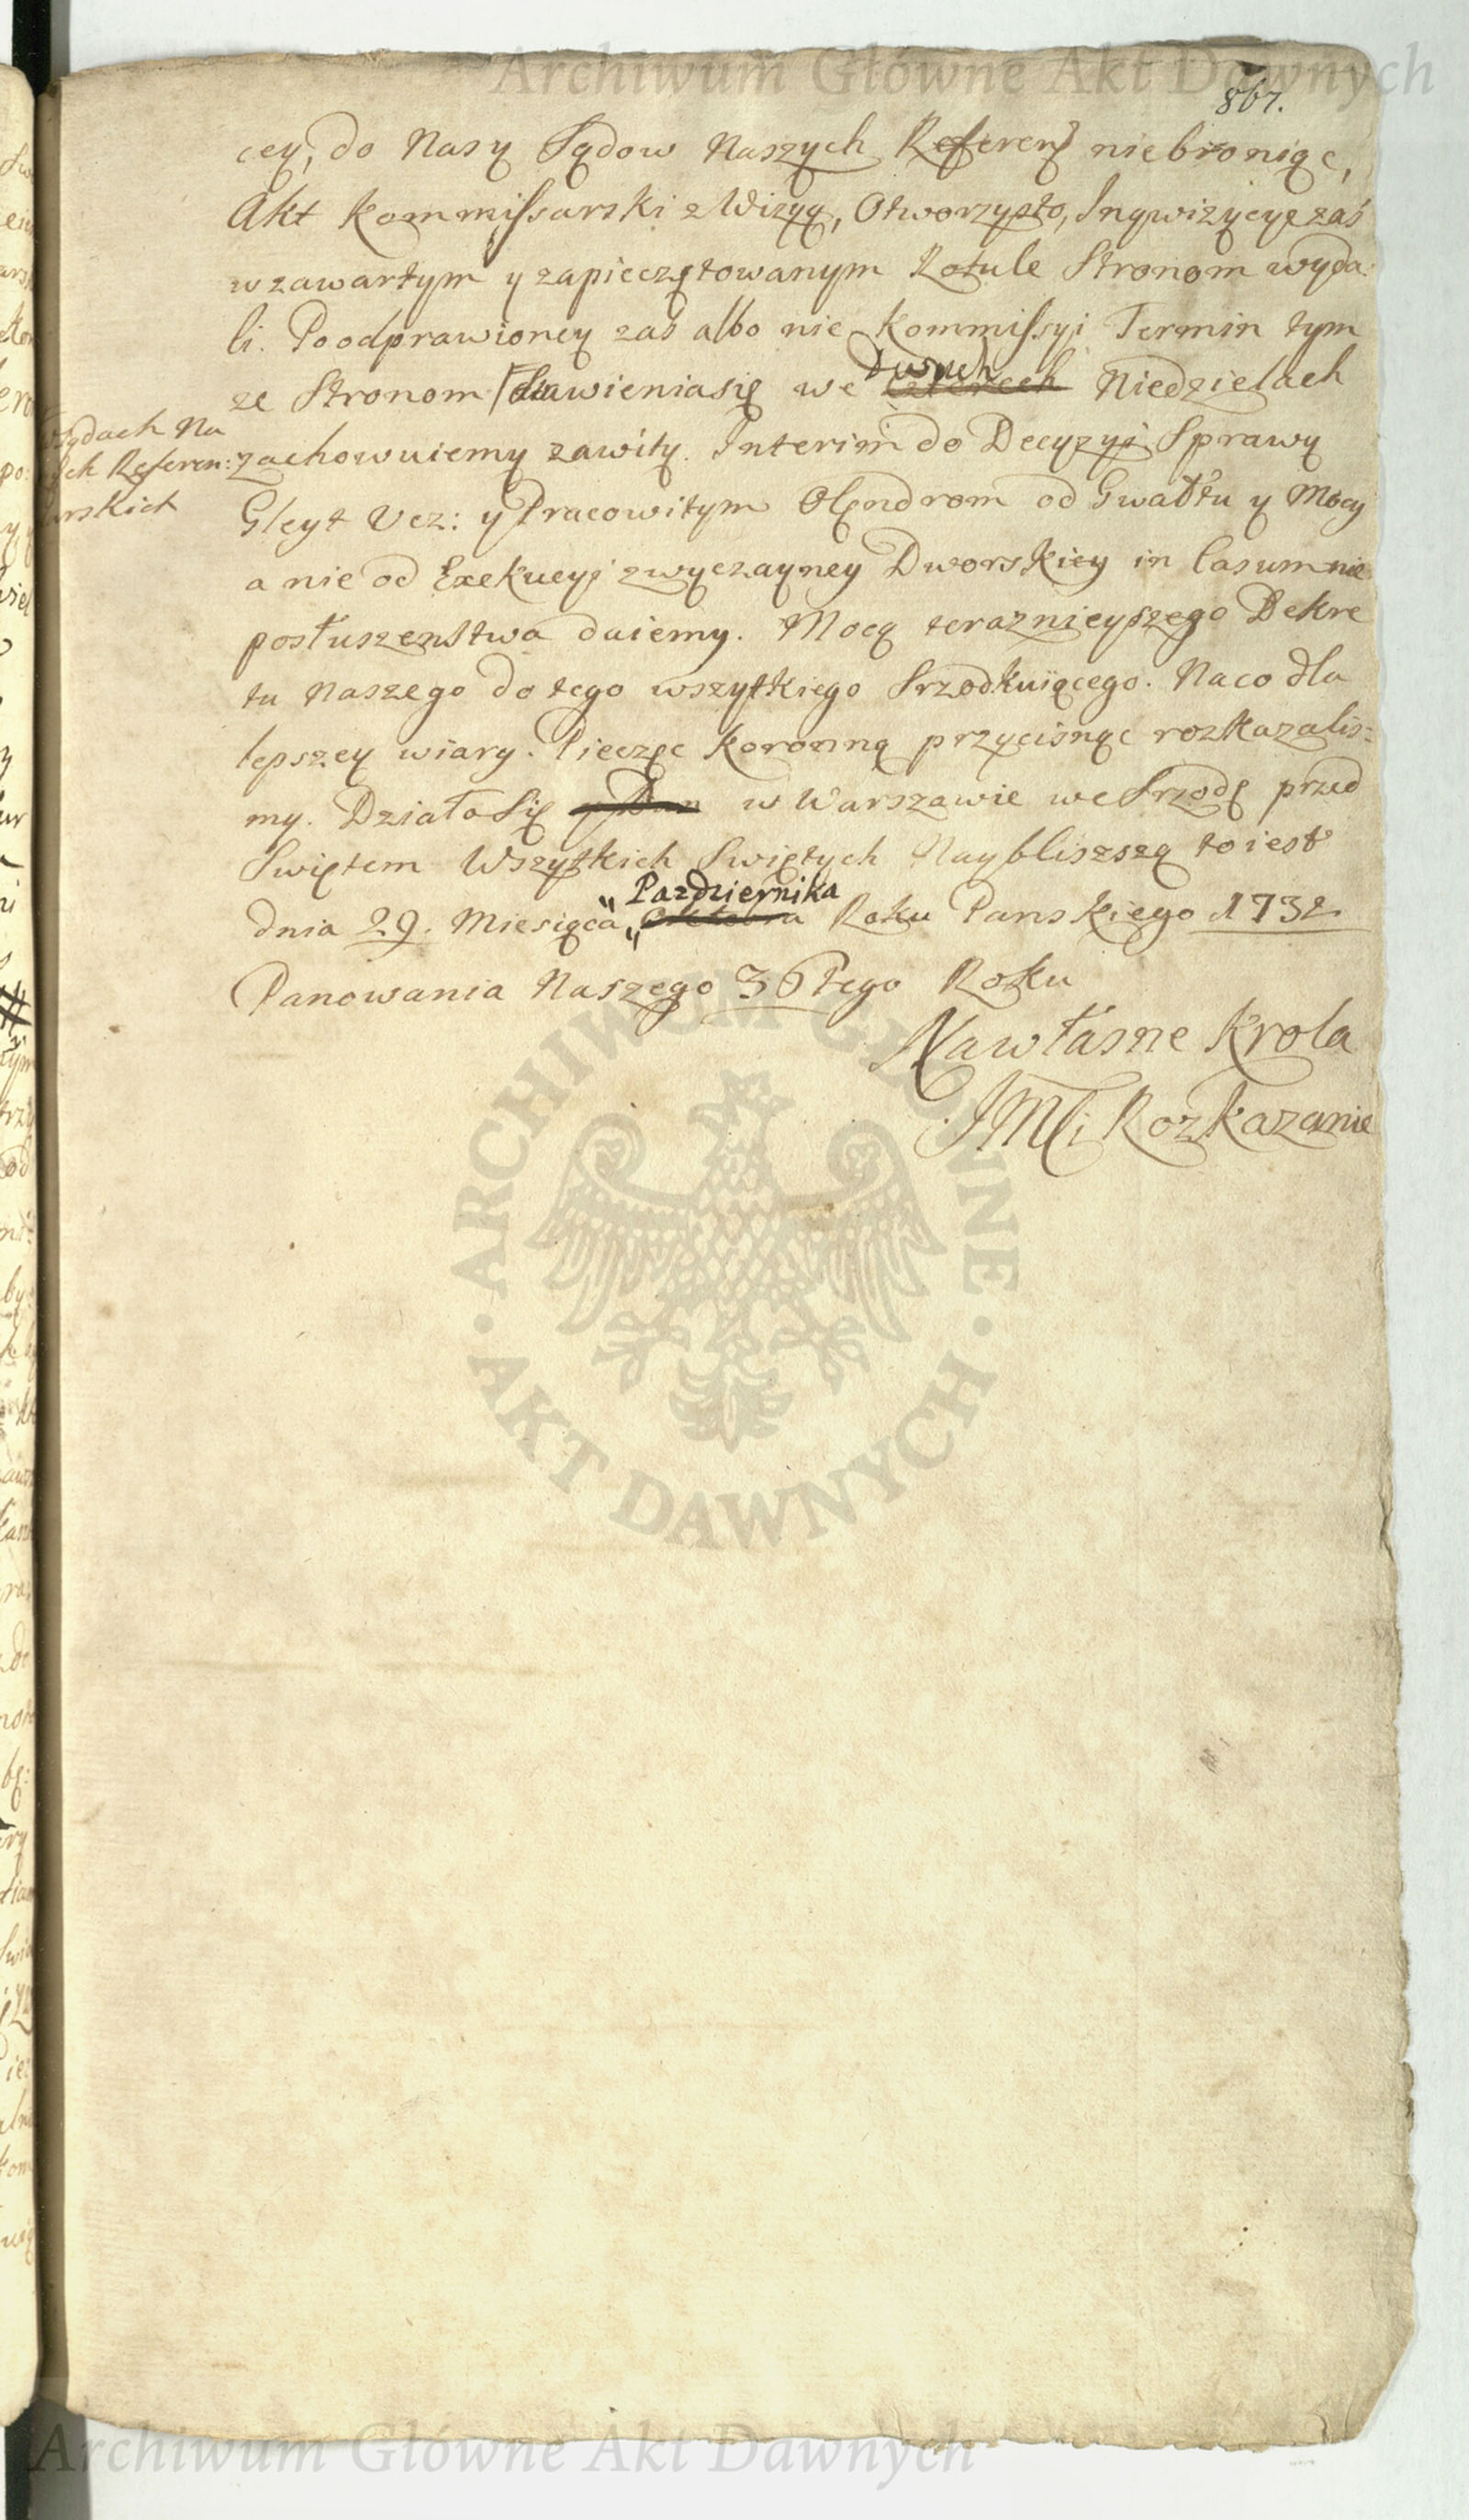 Archiwum Główne Akt Dawnych
867.
cey, do Nas y Sądow Naszych Referen niebroniąc,
Akt Kommissarski z Wizyą, Otworzysto, Inqwizycyę zaś
w zawartym y zapieczętowanym Rotule Stronom wyda:
li. Po odprawioney zaś albo nie Kommissyi Termin tym
że Stronom stawienia się we Dwuch Niedzielach
w Sądach Na
zachowuiemy zawity. Interim do Decyzyi Sprawy
ych Referen:
Gleyt Ucz: y Pracowitym Olendrom od Gwałtu y Mocy
arskich
a nie od Exekucyi zwyczayney Dworskiey in Casum nie
posłuszenstwa daiemy. Mocą teraznieyszego Dekre
tu Naszego do tego wszytkiego Srzodkuiącego. Na co dla
lepszey wiary. Pieczęc Koronną przycisnąc rozkazalis:
my. Działo Się w Warszawie we Srzodę przed
Swiętem Wszytkich Swiętych Naybliszszą to iest
dnia 29. Miesiąca „Pazdziernika„ Roku Panskiego 1732
Panowania Naszego 36tego Roku
Na własne Krola
JMCi Rozkazanie
ARCHIWUM GŁÓWNE · AKT DAWNYCH ·
Archiwum Główne Akt Dawnych